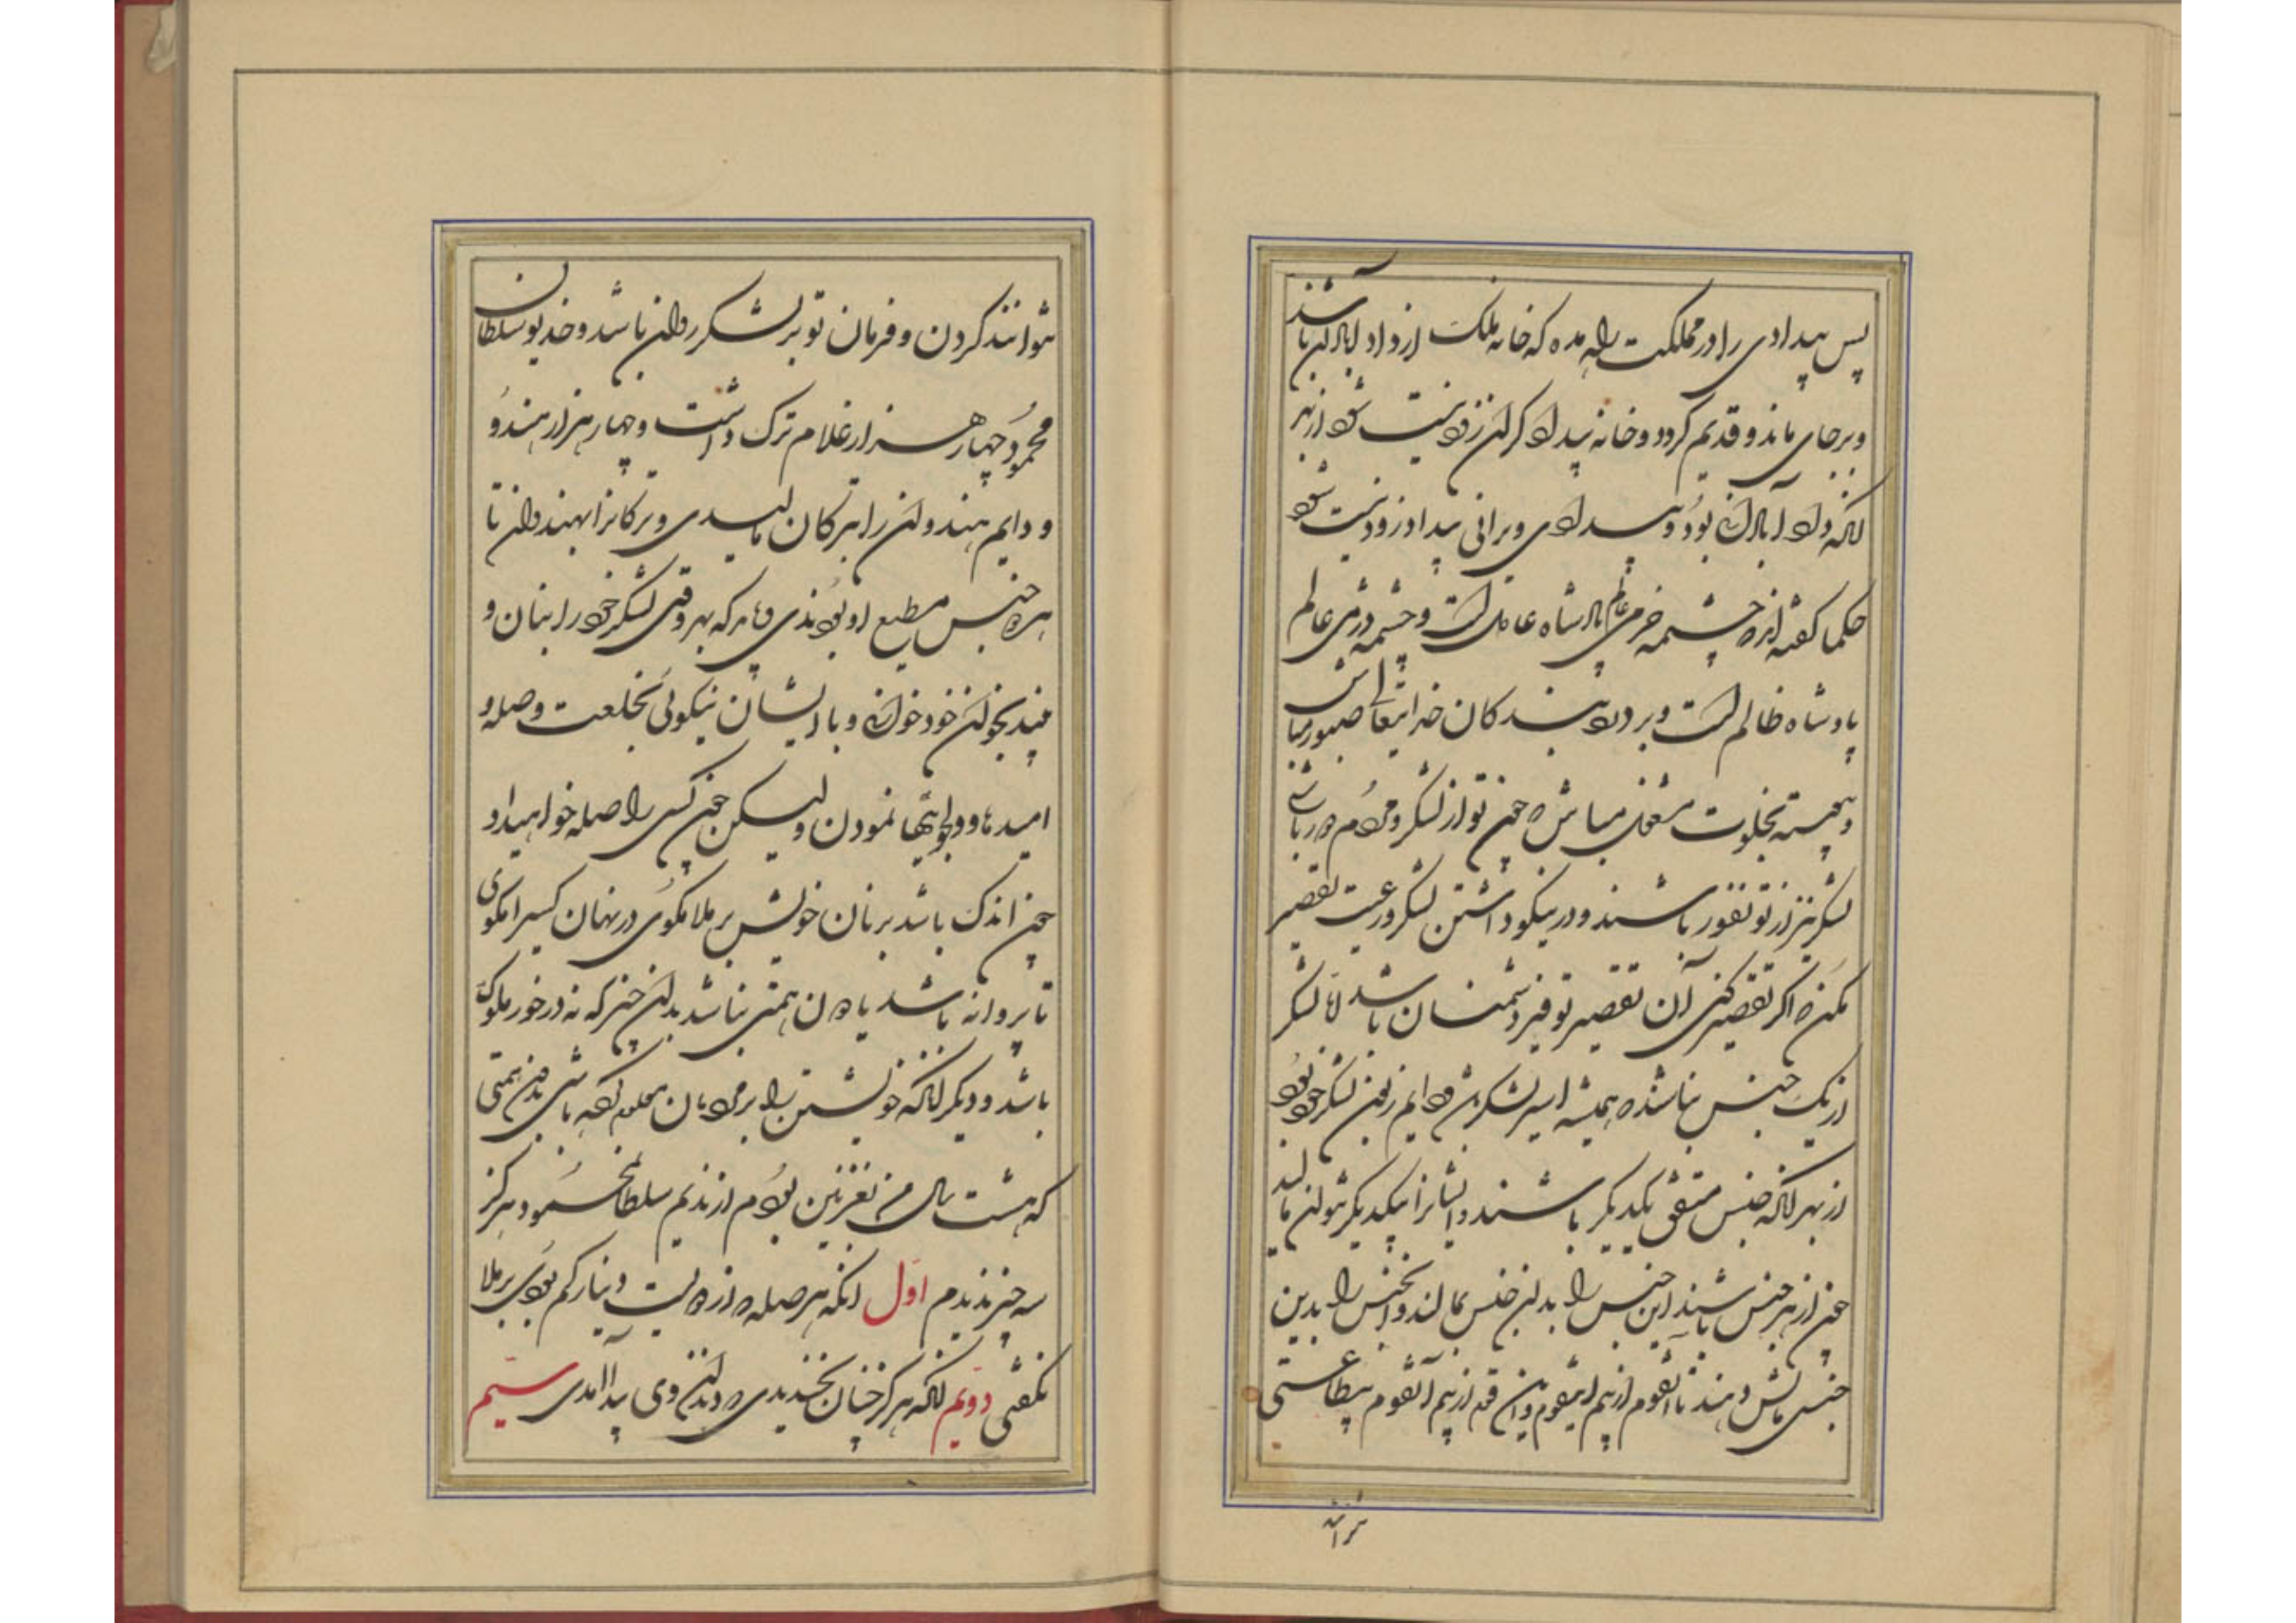 پس بیدادی را در مملکت راه مده که خانه ملک از داد آبادان باشد
و بر جای ماند و قدیم گردد و خانه بیداد کران زود نیست شود از بهر
آنکه داد آبادانی بود و بیدادی ویرانی بیداد زود نیست شود
حکما گفته‌اند چشمه خرمی عالم پادشاه عادل است و چشمه دژمی عالم
پادشاه ظالم است و بر درد بندگان خدایتعالی صبور مباش
و پیوسته بخلوت مشغول مباش که چون تو از لشکر و مردم دور باشی
لشکر نیز از تو نفور باشند و در نیکو داشتن لشکر و رعیت تقصیر
مکن که اگر تقصیر کنی آن تقصیر توفیر دشمنان باشد اما لشکر
از یک جنس نباشد که همیشه اسیر لشکر باشی و دایم زبون لشکر خود بود
از بهر آنکه جنس متفق یکدیگر باشند و ایشانرا بیکدیگر نتوان مالید
چون از هر جنس باشند این جنس را بدان جنس بمالند و آنجنس را بدین
جنس مالش دهند تا آنقوم از بیم اینقوم و این قوم از بیم آنقوم بیطاعتی
نتوانند
نتوانند کردن و فرمان تو بر لشکر روان باشد و خدیو سلطان
محمود چهار هزار غلام ترک داشت و چهار هزار هندو
و دایم هندوان را بترکان مالیدی و ترکانرا بهندوان تا
هر دو جنس مطیع او بودندی و باید که بهر وقتی لشکر خود را بنان و
نبید بخوان خود خوانی و با ایشان نیکوئی بخلعت و صله و
امیدها و دلجوئیها نمودن ولیکن چون کسی را صله خواهی داد
چون اندک باشد بزبان خویش بر ملا مگوی در نهان کسیرا مگوی
تا پروانه باشد یا دون همتی نباشد بدان چیز که نه در خور ملوک
باشد و دیگر آنکه خویشتن را بر مردمان معلوم کرده باشی بدون همتی
که هشت سال من بغزنین بودم از ندیم سلطان محمود هرگز
سه چیز ندیدم اوّل آنکه هر صله که از دویست دینار کم بودی بر ملا
نگفتی دوّیم آنکه هرگز چنان نخندیدی که دندان وی پیدا آمدی سیّم